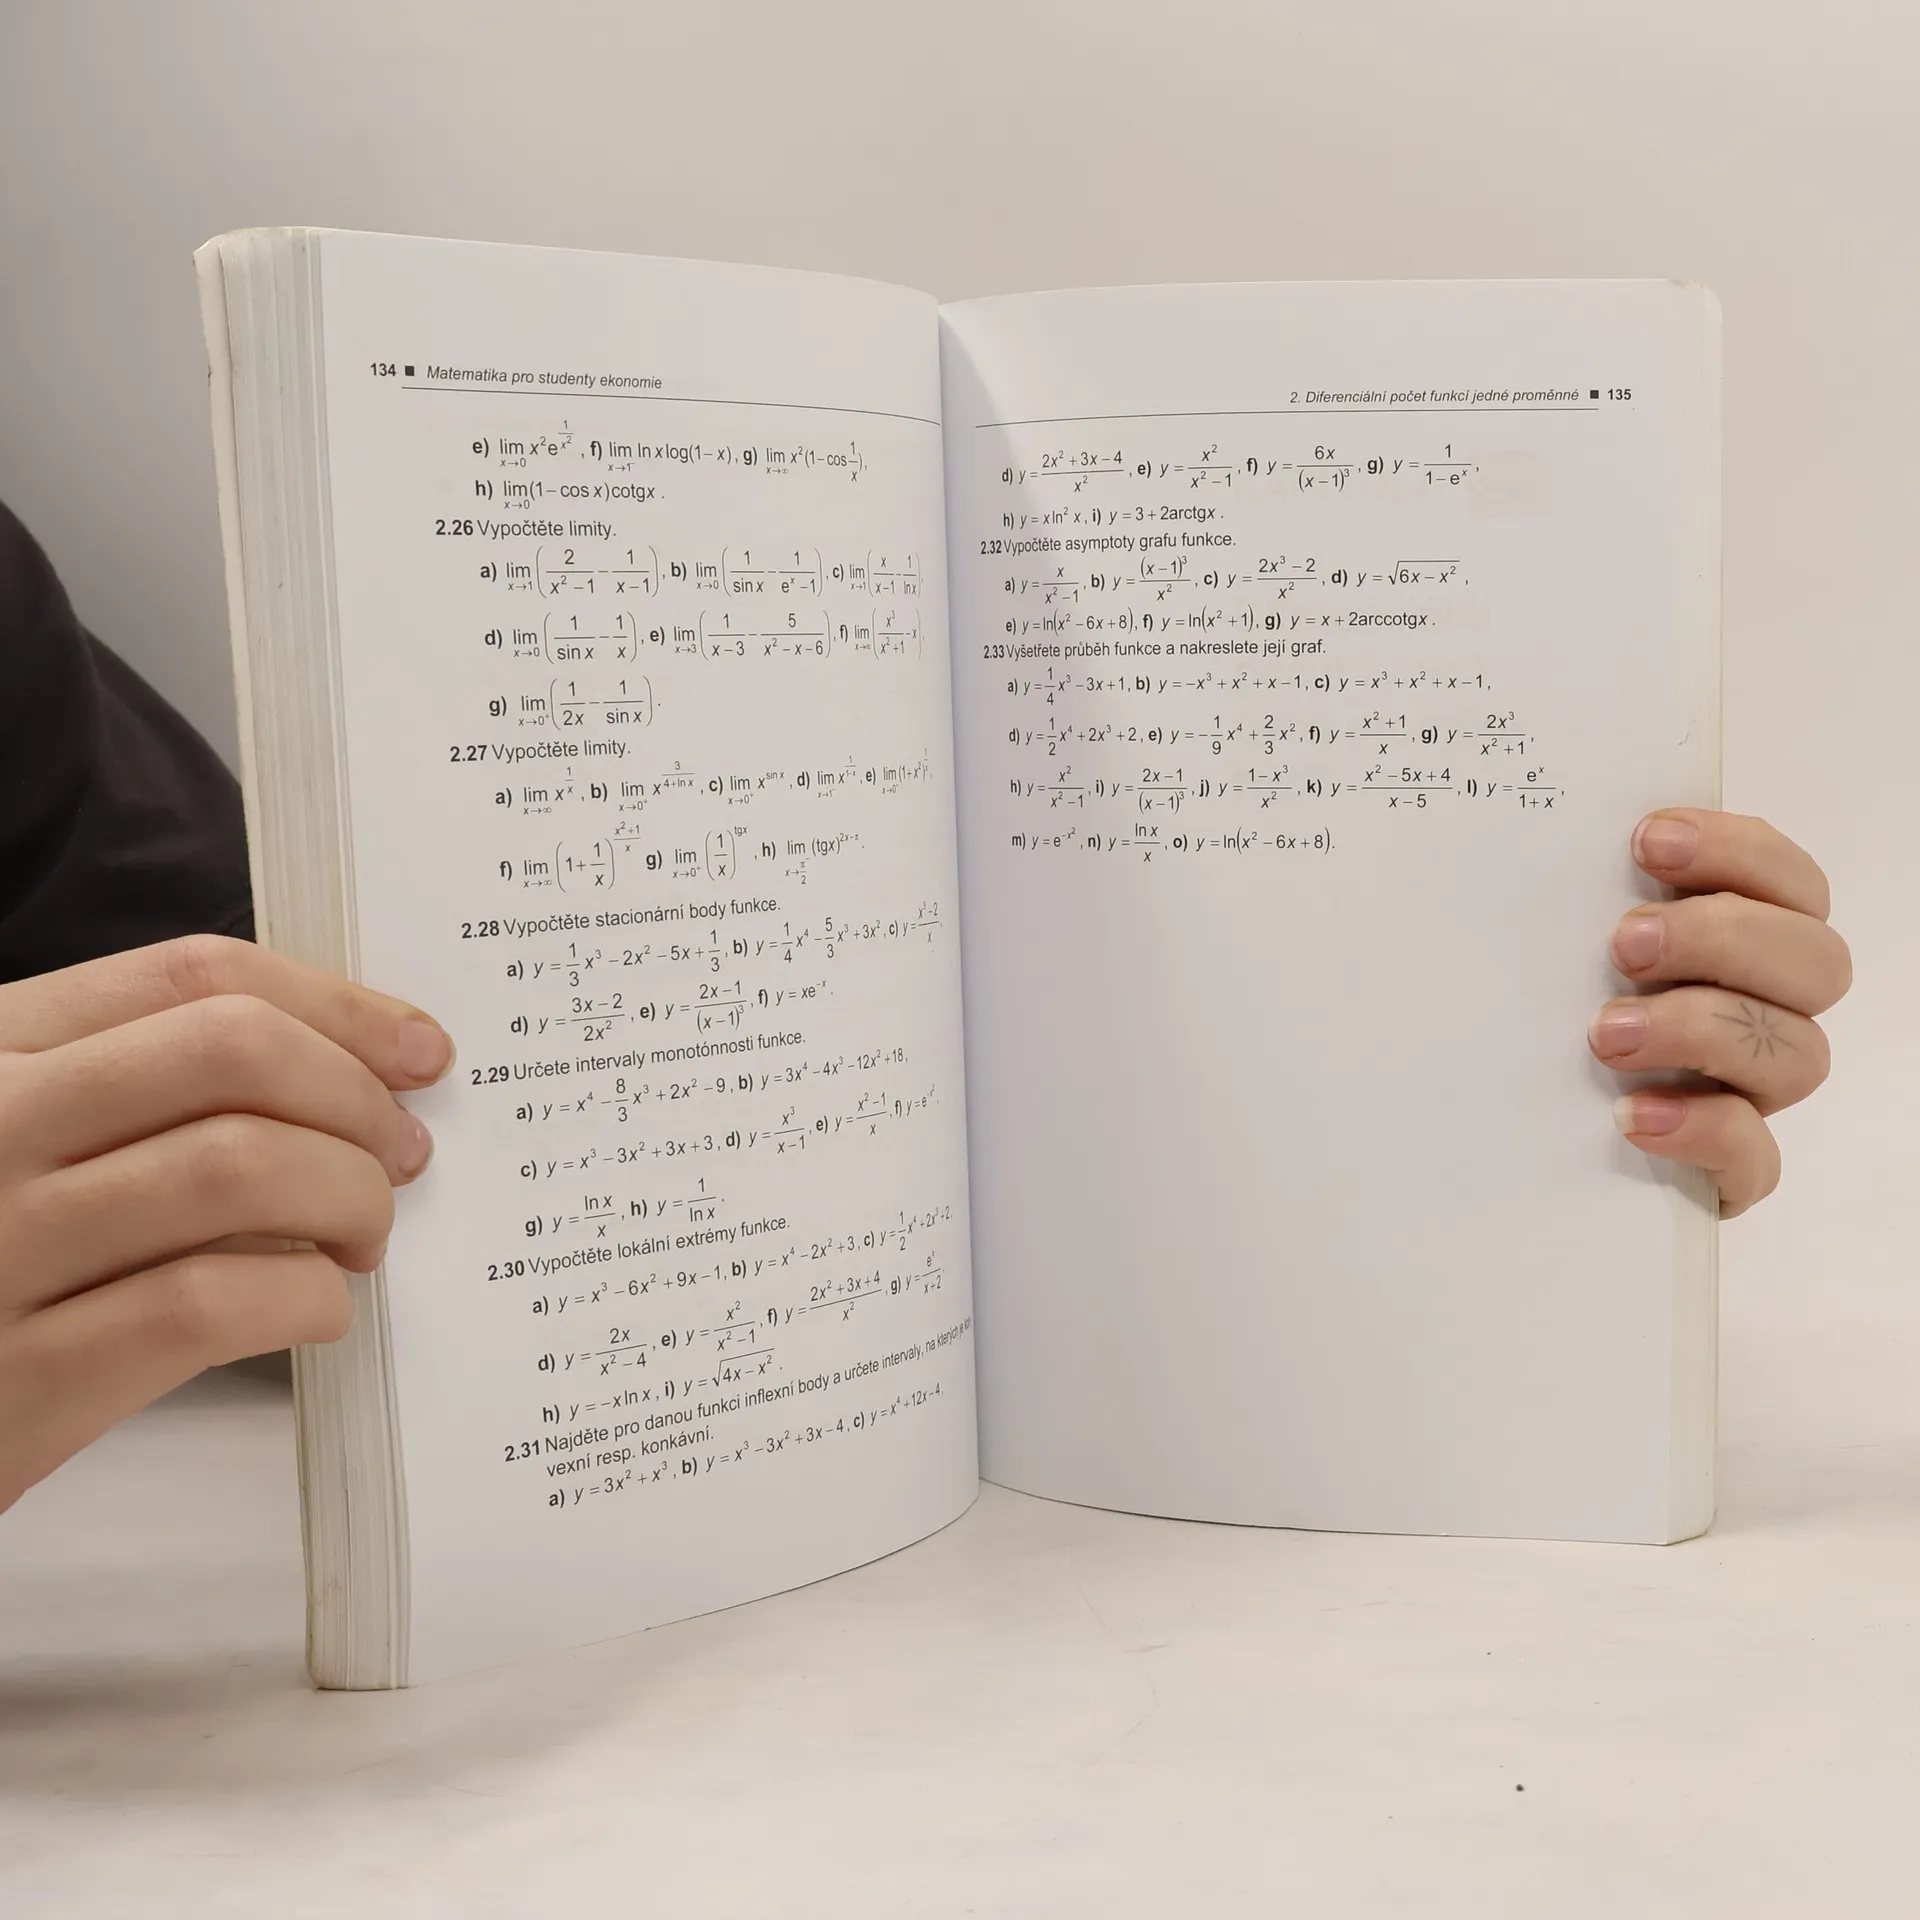 134 ■ Matematika pro studenty ekonomie
e) lim_{x→0} x²e^{1/x²}, f) lim_{x→1⁻} ln x log(1−x), g) lim_{x→∞} x²(1−cos 1/x),
h) lim_{x→0}(1−cos x)cotgx.
2.26 Vypočtěte limity.
a) lim_{x→1} (2/(x²−1) − 1/(x−1)), b) lim_{x→0} (1/sin x − 1/(eˣ−1)), c) lim_{x→1} (x/(x−1) − 1/ln x),
d) lim_{x→0} (1/sin x − 1/x), e) lim_{x→3} (1/(x−3) − 5/(x²−x−6)), f) lim_{x→∞} (x³/(x²+1) − x),
g) lim_{x→0⁺} (1/2x − 1/sin x).
2.27 Vypočtěte limity.
a) lim_{x→∞} x^{1/x}, b) lim_{x→0⁺} x^{3/(4+ln x)}, c) lim_{x→0⁺} x^{sin x}, d) lim_{x→1⁻} x^{1/(1−x)}, e) lim_{x→0⁺} (1+x²)
f) lim_{x→∞} (1+1/x)^{(x²+1)/x} g) lim_{x→0⁺} (1/x)^{tgx}, h) lim_{x→π/2⁻} (tgx)^{2x−π}.
2.28 Vypočtěte stacionární body funkce.
a) y = 1/3 x³ − 2x² − 5x + 1/3, b) y = 1/4 x⁴ − 5/3 x³ + 3x², c) y = (x³−2)/x,
d) y = (3x−2)/2x², e) y = (2x−1)/(x−1)³, f) y = xe⁻ˣ.
2.29 Určete intervaly monotónnosti funkce.
a) y = x⁴ − 8/3 x³ + 2x² − 9, b) y = 3x⁴ − 4x³ − 12x² + 18,
c) y = x³ − 3x² + 3x + 3, d) y = x³/(x−1), e) y = (x²−1)/x, f) y = e^{−x²},
g) y = ln x/x, h) y = 1/ln x.
2.30 Vypočtěte lokální extrémy funkce.
a) y = x³ − 6x² + 9x − 1, b) y = x⁴ − 2x² + 3, c) y = 1/2 x⁴ + 2x³ + 2,
d) y = 2x/(x²−4), e) y = x²/(x²−1), f) y = (2x²+3x+4)/x², g) y = eˣ/(x+2),
h) y = −x ln x, i) y = √(4x−x²).
2.31 Najděte pro danou funkci inflexní body a určete intervaly, na kterých je
vexní resp. konkávní.
a) y = 3x² + x³, b) y = x³ − 3x² + 3x − 4, c) y = x⁴ + 12x − 4,
2. Diferenciální počet funkcí jedné proměnné ■ 135
d) y = (2x²+3x−4)/x², e) y = x²/(x²−1), f) y = 6x/(x−1)³, g) y = 1/(1−eˣ),
h) y = x ln² x, i) y = 3 + 2arctgx.
2.32 Vypočtěte asymptoty grafu funkce.
a) y = x/(x²−1), b) y = (x−1)³/x², c) y = (2x³−2)/x², d) y = √(6x−x²),
e) y = ln(x²−6x+8), f) y = ln(x²+1), g) y = x + 2arccotgx.
2.33 Vyšetřete průběh funkce a nakreslete její graf.
a) y = 1/4 x³ − 3x + 1, b) y = −x³ + x² + x − 1, c) y = x³ + x² + x − 1,
d) y = 1/2 x⁴ + 2x³ + 2, e) y = −1/9 x⁴ + 2/3 x², f) y = (x²+1)/x, g) y = 2x³/(x²+1),
h) y = x²/(x²−1), i) y = (2x−1)/(x−1)³, j) y = (1−x³)/x², k) y = (x²−5x+4)/(x−5), l) y = eˣ/(1+x),
m) y = e^{−x²}, n) y = ln x/x, o) y = ln(x²−6x+8).